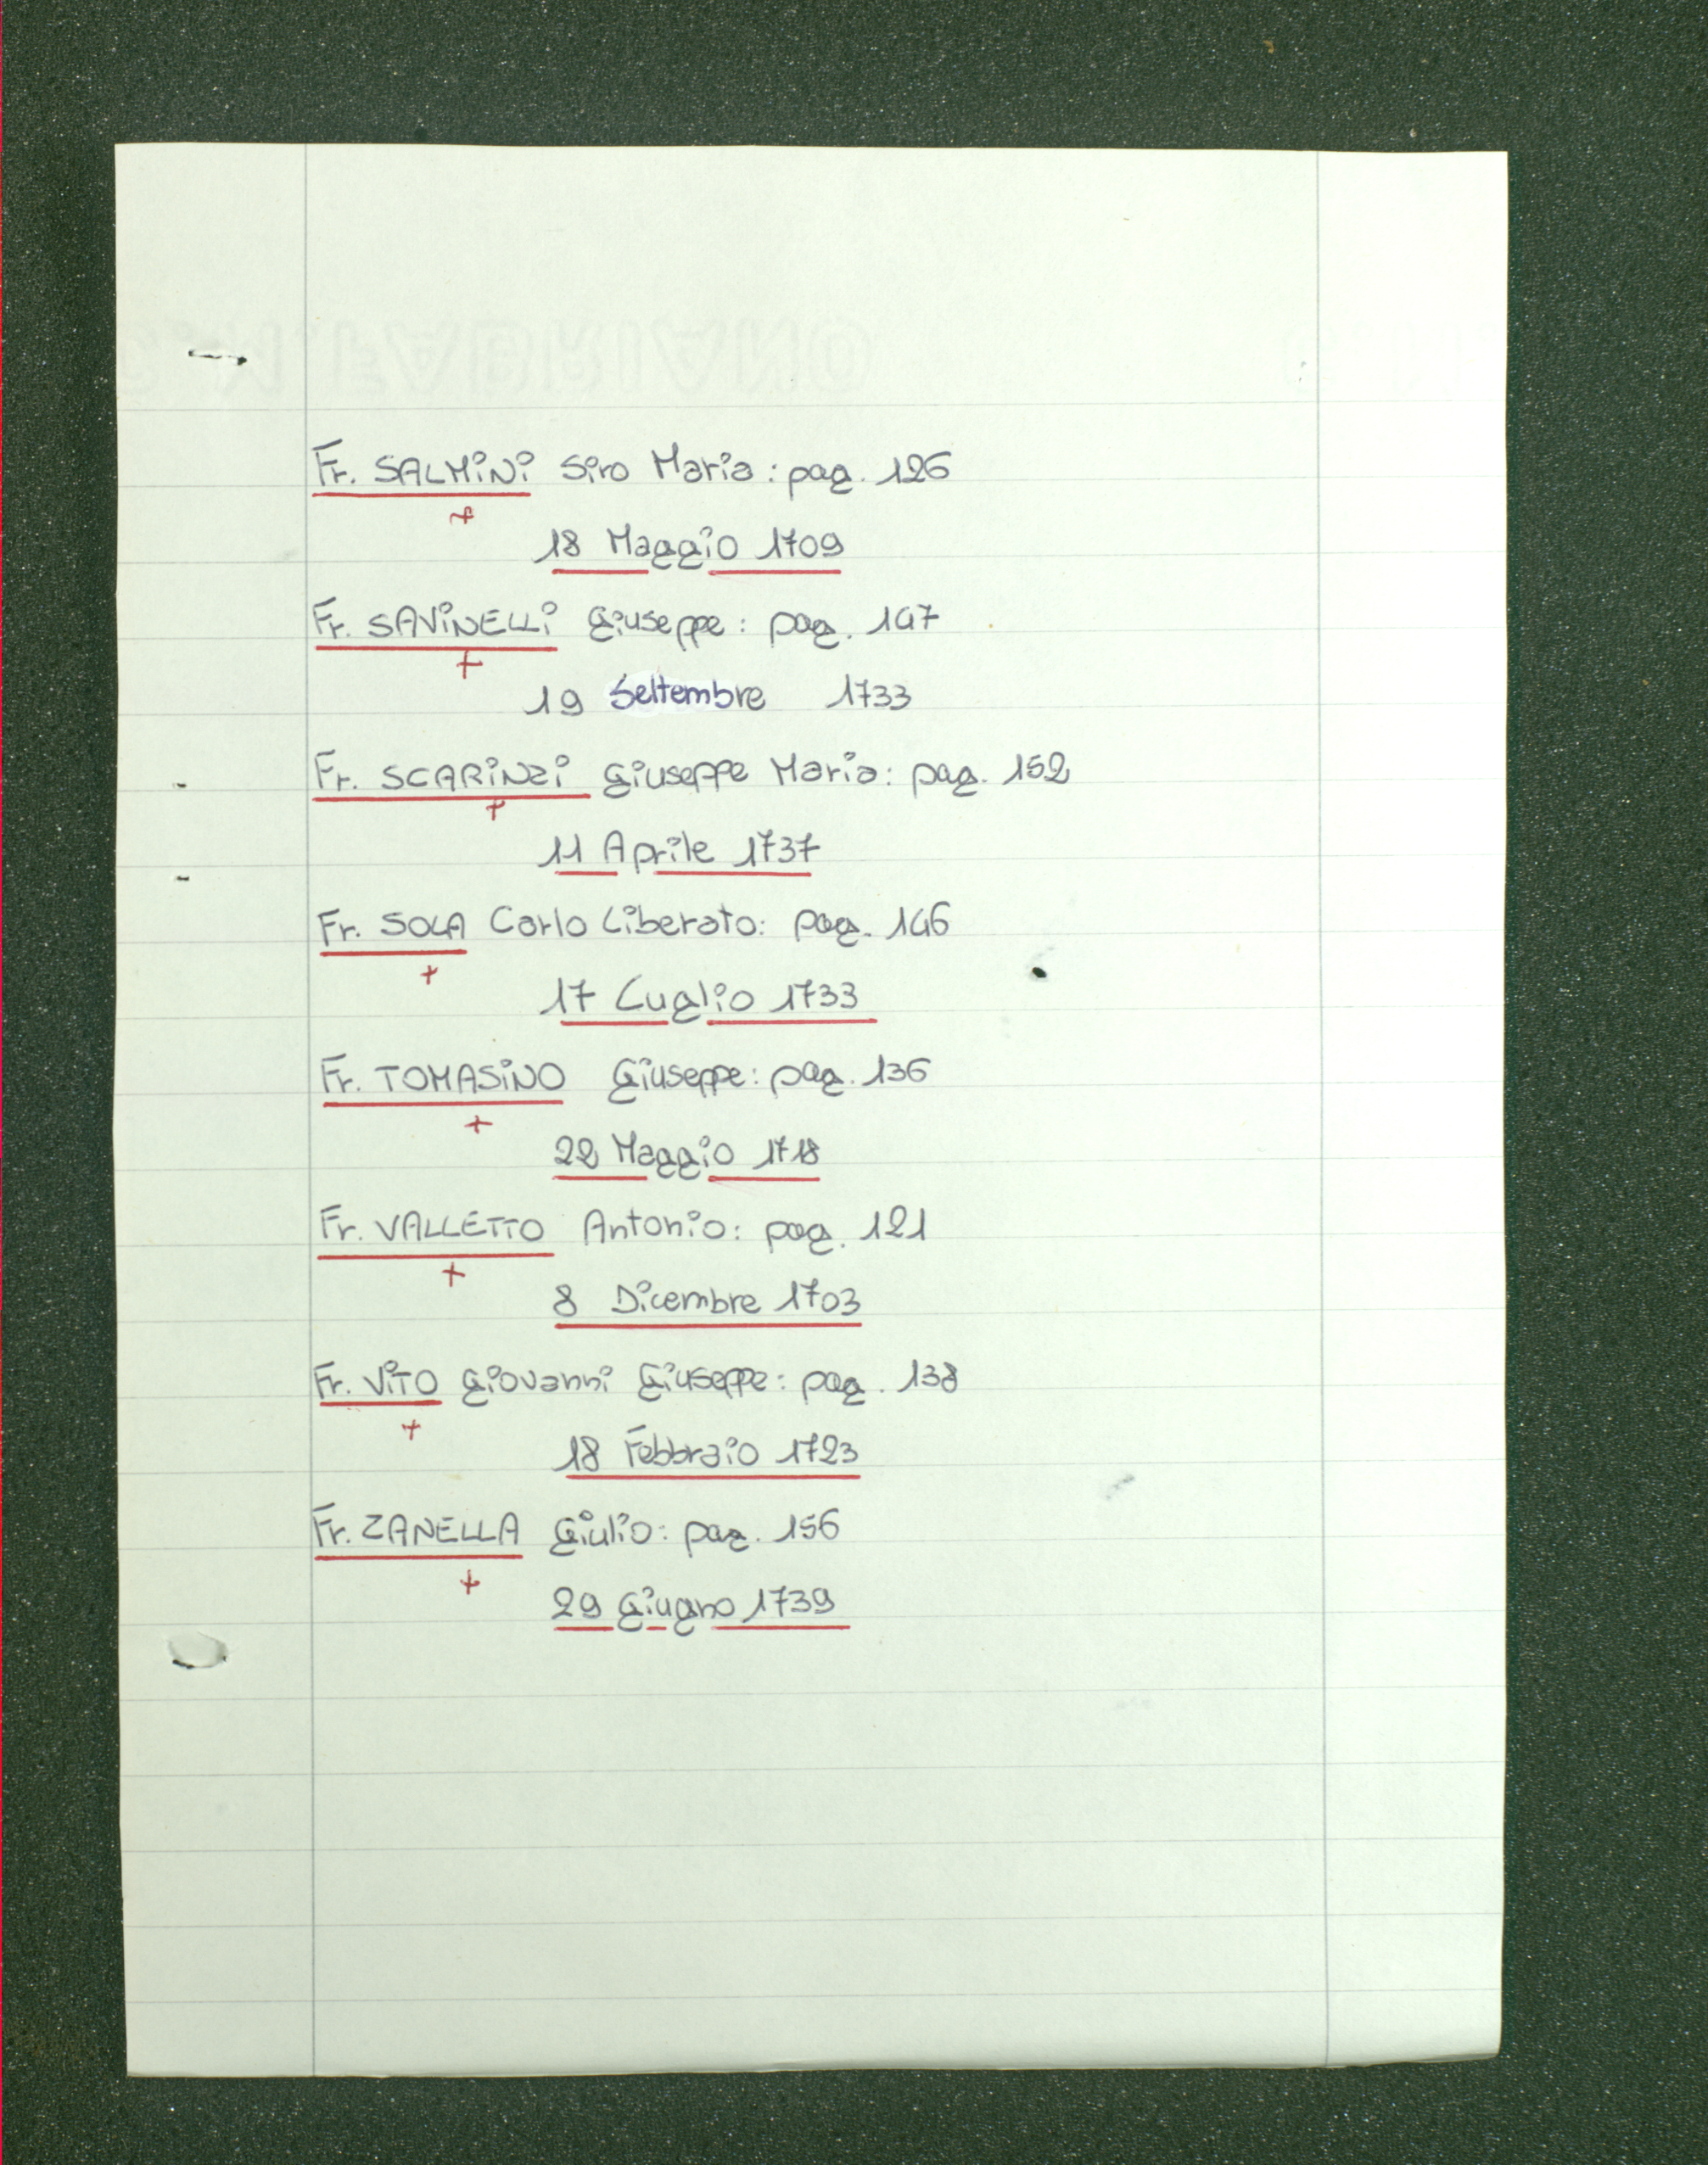 Fr. SALMiNi Siro Maria: pag. 126
+
18 Maggio 1709
Fr. SAViNELLi Giuseppe: pag. 147
+
19 Settembre 1733
Fr. SCARiNZi Giuseppe Maria: pag. 152
+
11 Aprile 1737
Fr. SOLA Carlo Liberato: pag. 146
+
17 Luglio 1733
Fr. TOMASiNO Giuseppe: pag. 136
+
22 Maggio 1718
Fr. VALLETTO Antonio: pag. 121
+
8 Dicembre 1703
Fr. ViTO Giovanni Giuseppe: pag. 138
+
18 Febbraio 1723
Fr. ZANELLA Giulio: pag. 156
+
29 Giugno 1739